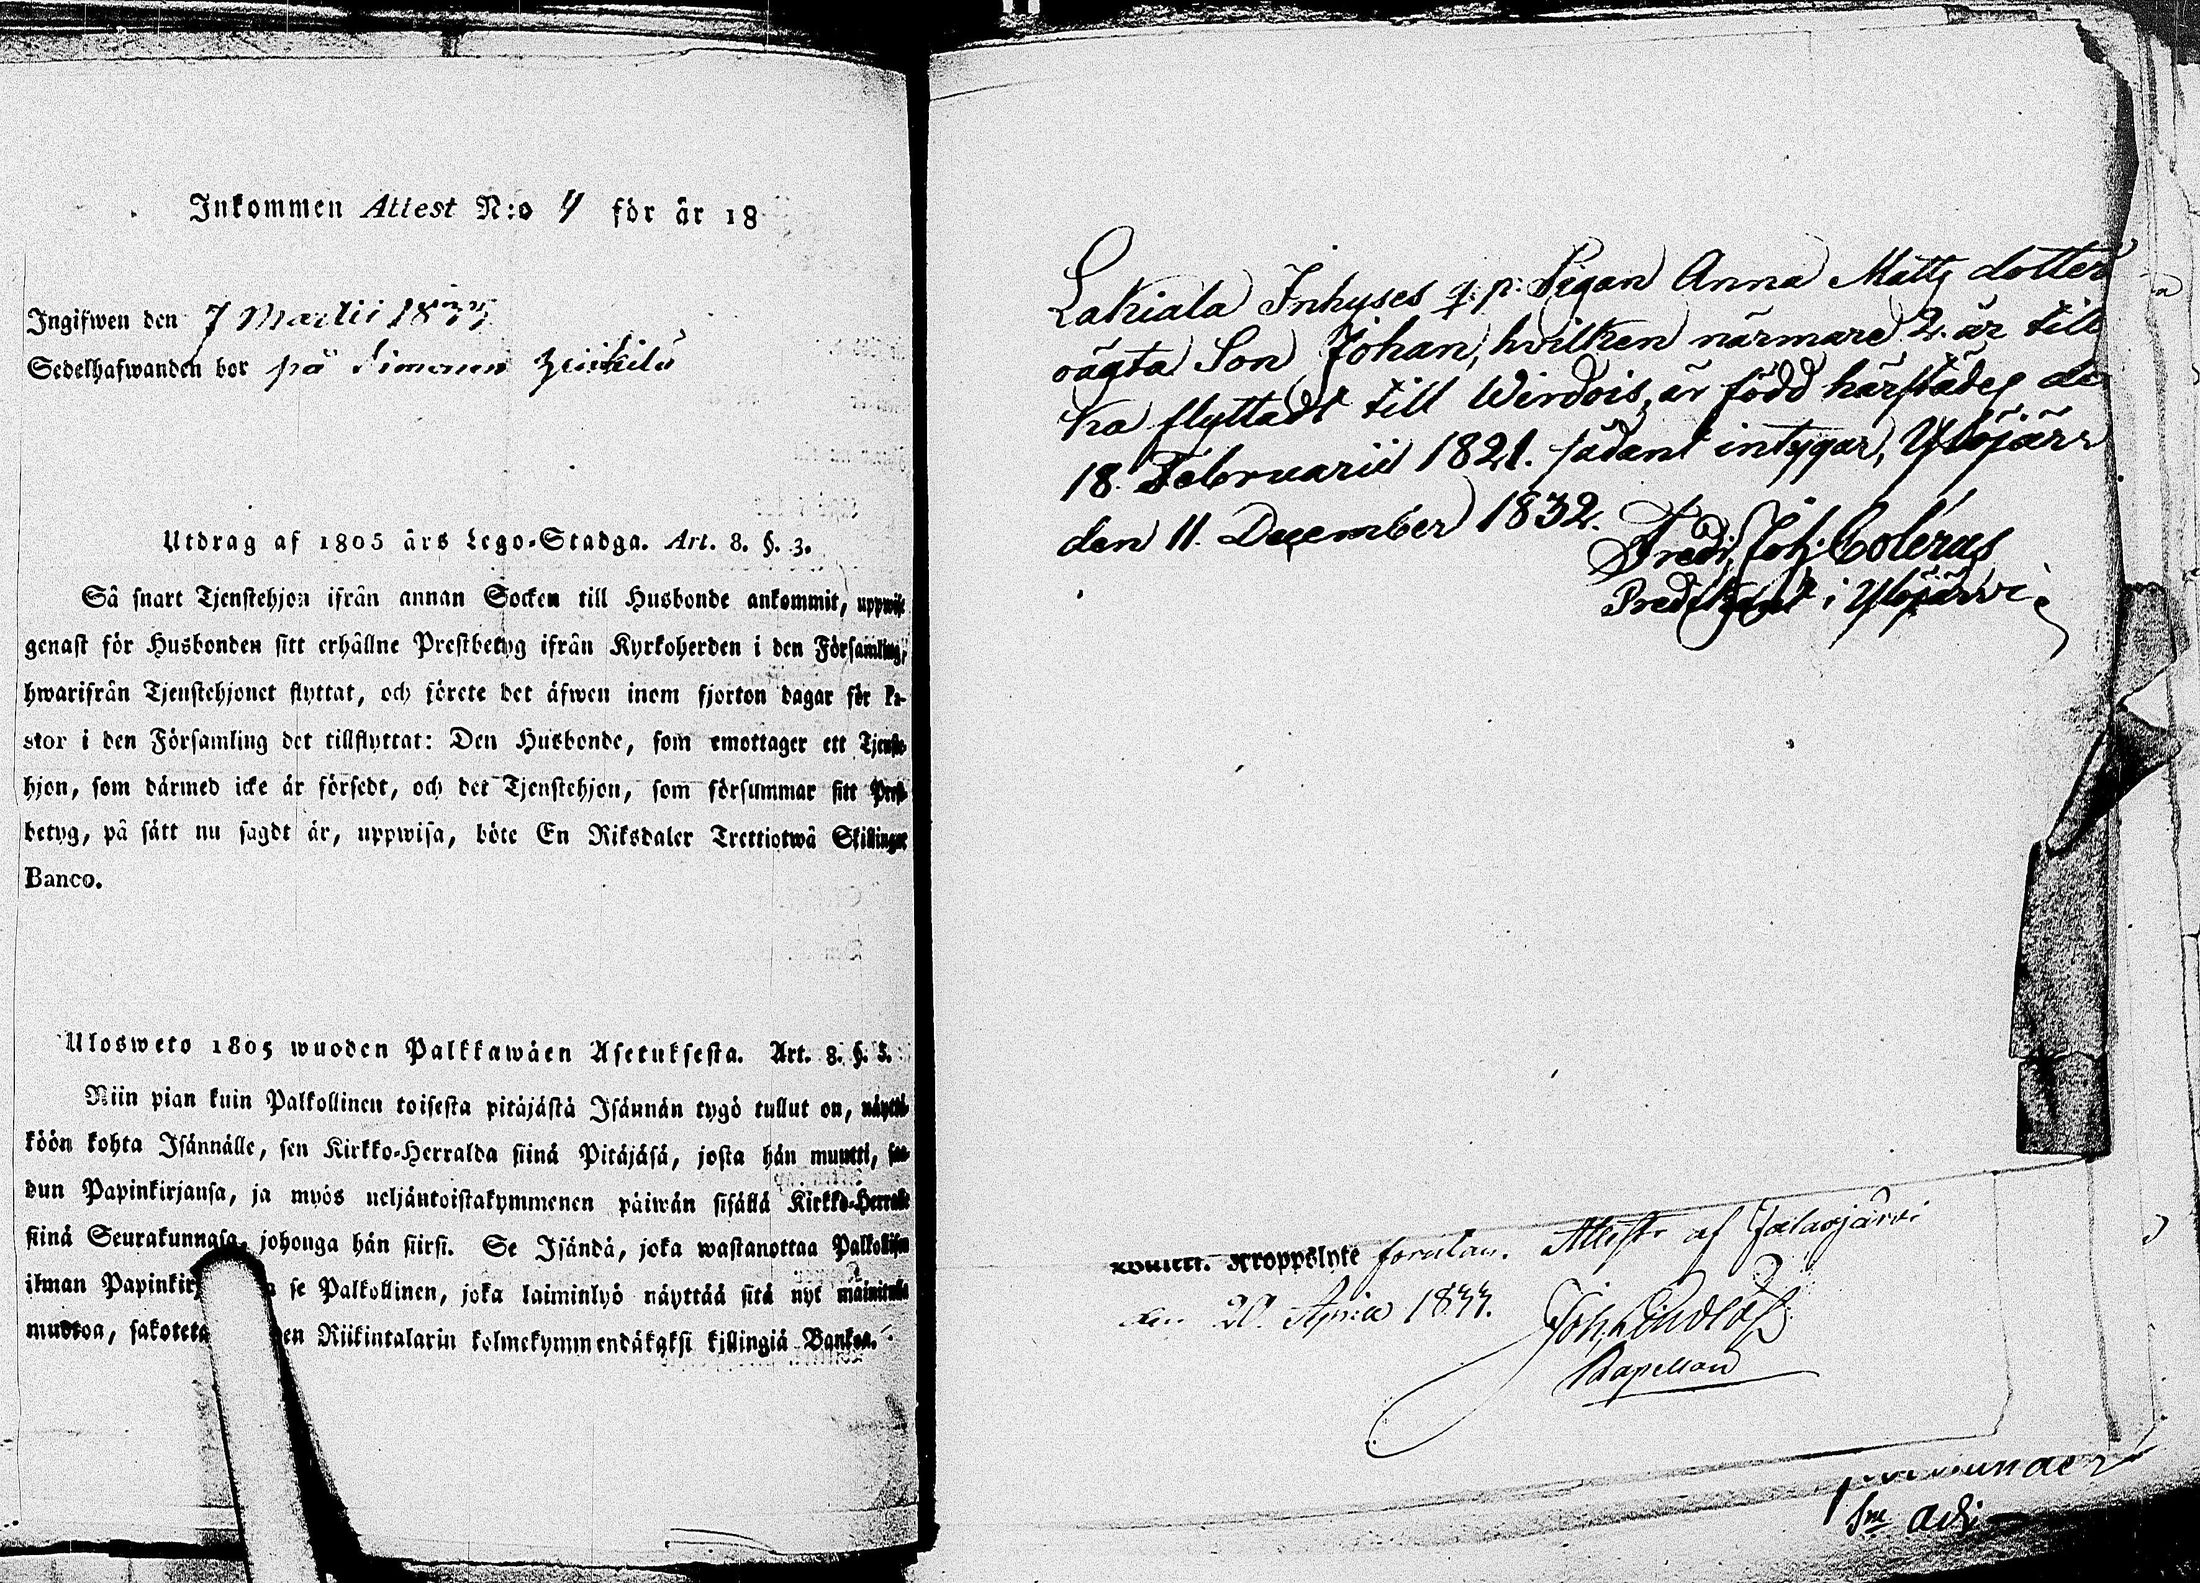 Inkommen Attest N:o 4 för år 18
Ingifwen den 7 Martii 1833
Sedelhafwanden bor på Simonen
Utdrag af 1805 års Lego-Stadga. Art. 8. §. 3.
Så snart Tjenstehjon ifrån annan Socken till Husbonde ankommit, uppwise
genast för Husbonden sitt erhållne Prestbetyg ifrån Kyrkoherden i den Församling,
hwarifrån Tjenstehjonet flyttat, och förete det äfwen inom fjorton dagar för Pa-
stor i den Församling det tillflyttat: Den Husbonde, som emottager ett Tjenste-
hjon, som därmed icke är försedt, och det Tjenstehjon, som försummar sitt Prest-
betyg, på sätt nu sagdt är, uppwisa, böte En Riksdaler Trettiotwå Skillingar
Banco.
Ulosweto 1805 wuoden Palkkawäen Asetuksesta. Art. 8. §. 3.
Niin pian kuin Palkollinen toisesta pitäjästä Isännän tygö tullut on, näyttä-
köön kohta Isännälle, sen Kirkko-Herralda siinä Pitäjäsä, josta hän muutti, saa-
dun Papinkirjansa, ja myös neljäntoistakymmenen päiwän sisällä Kirkko-Herralle
siinä Seurakunnasa, johonga hän siirsi. Se Isändä, joka wastanottaa Palkollisen
ilman Papinkir a se Palkollinen, joka laiminlyö näyttää sitä nyt mainitulla
muotoa, sakoteta en Riikintalarin kolmekymmendäkaksi killingiä Bankoa.
Lakiala Inhyses q. p. Pigan Anna Matts dotter
oägta Son Johan, hvilken närmare 2. år till
ka flyttadt till Wirdois, är född härstädes de
18. Februarii 1821. sådant intygar, Ylöjärv
den 11. December 1832.
Fredr. Joh. Colerus
Predikant i Ylöjärvi
Kroppslyte forutan. Attest af Jalasjärvi
den 20. April 1833.
Joh. Lindlöf
Kapellan
sm adi